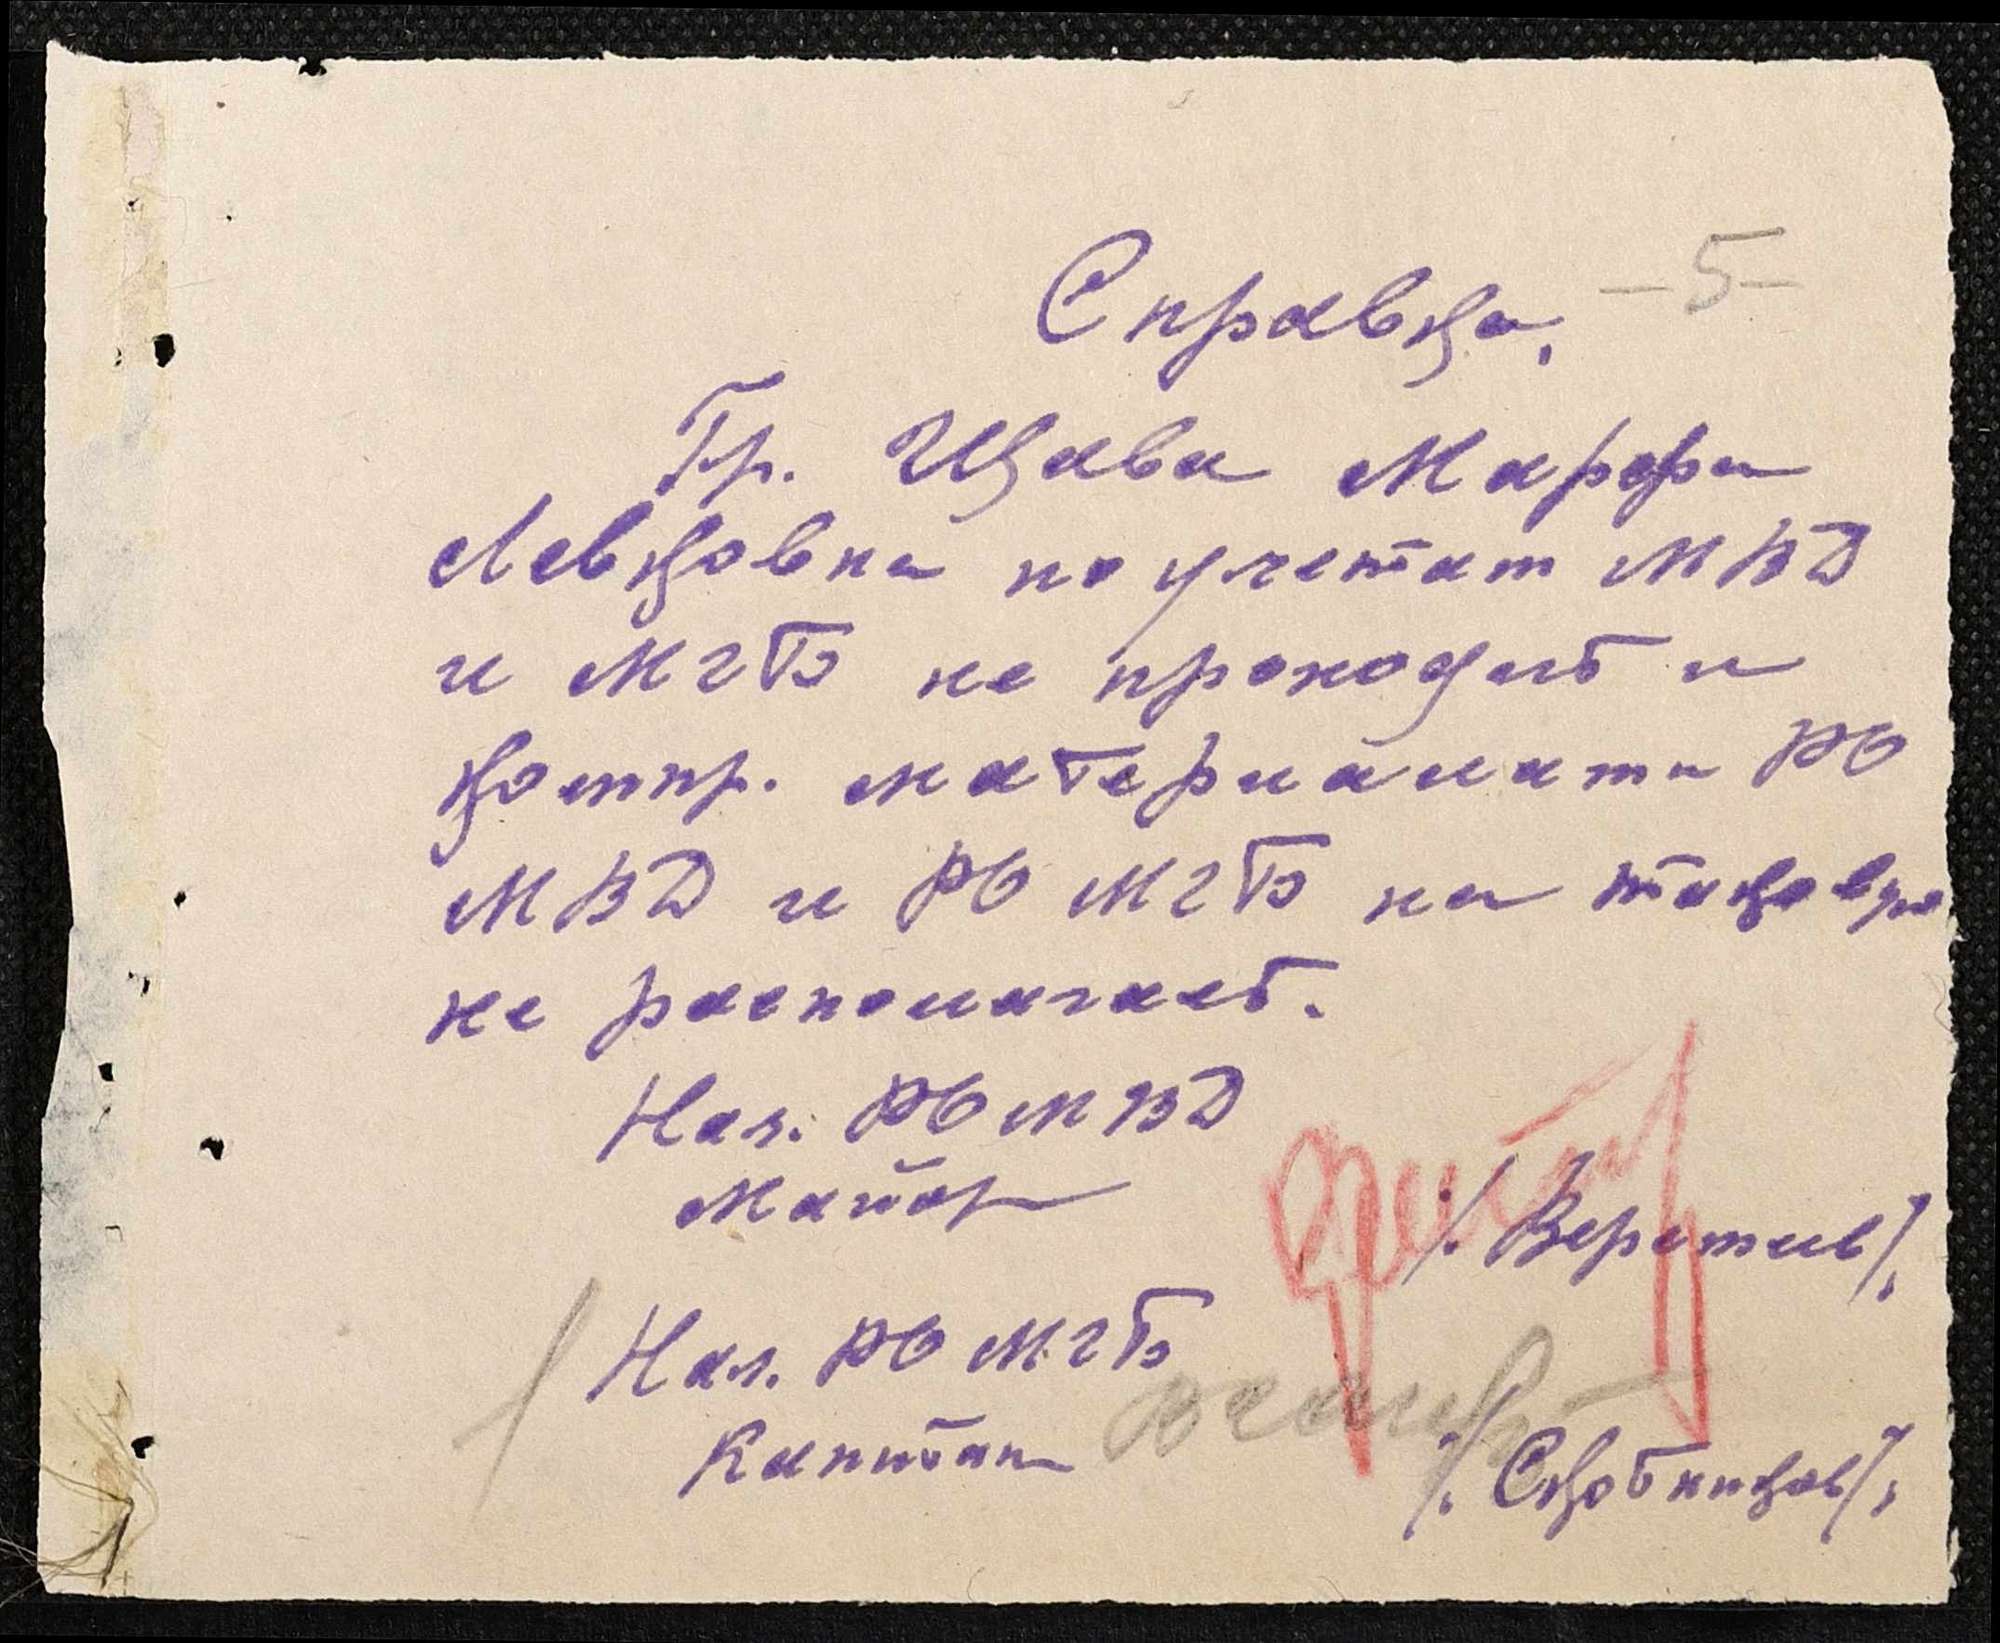 Справка. -5-
Гр. Щава Марфа
Левковна по учетам МВД
и МГБ не проходит и
компр. материалами РО
МВД и РО МГБ на таковую
не располагает.
Нач. РО МВД
Майор /. Веретин/.
Нач. РО МГБ
Капитан /. Скотников/.